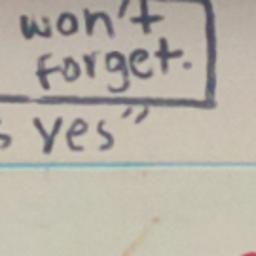 won't
forget.
s yes"